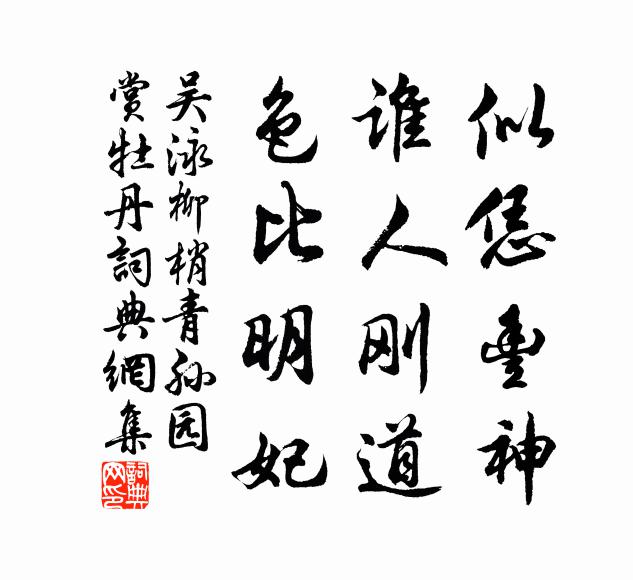 似恁丰神
谁人刚道
色比明妃
吴泳柳梢青孙园
赏牡丹詞典網集
詞典网印